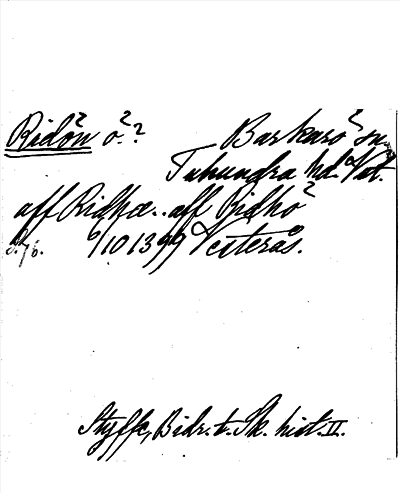 Ridön ö.? Barkarö sn
Tuhundra hd. Vstl.
aff Ridhœ.. aff Ridhö
s. 76. 6/10 1399 Vesterås.
Styffe, Bidr. t. Sk. hist. II.